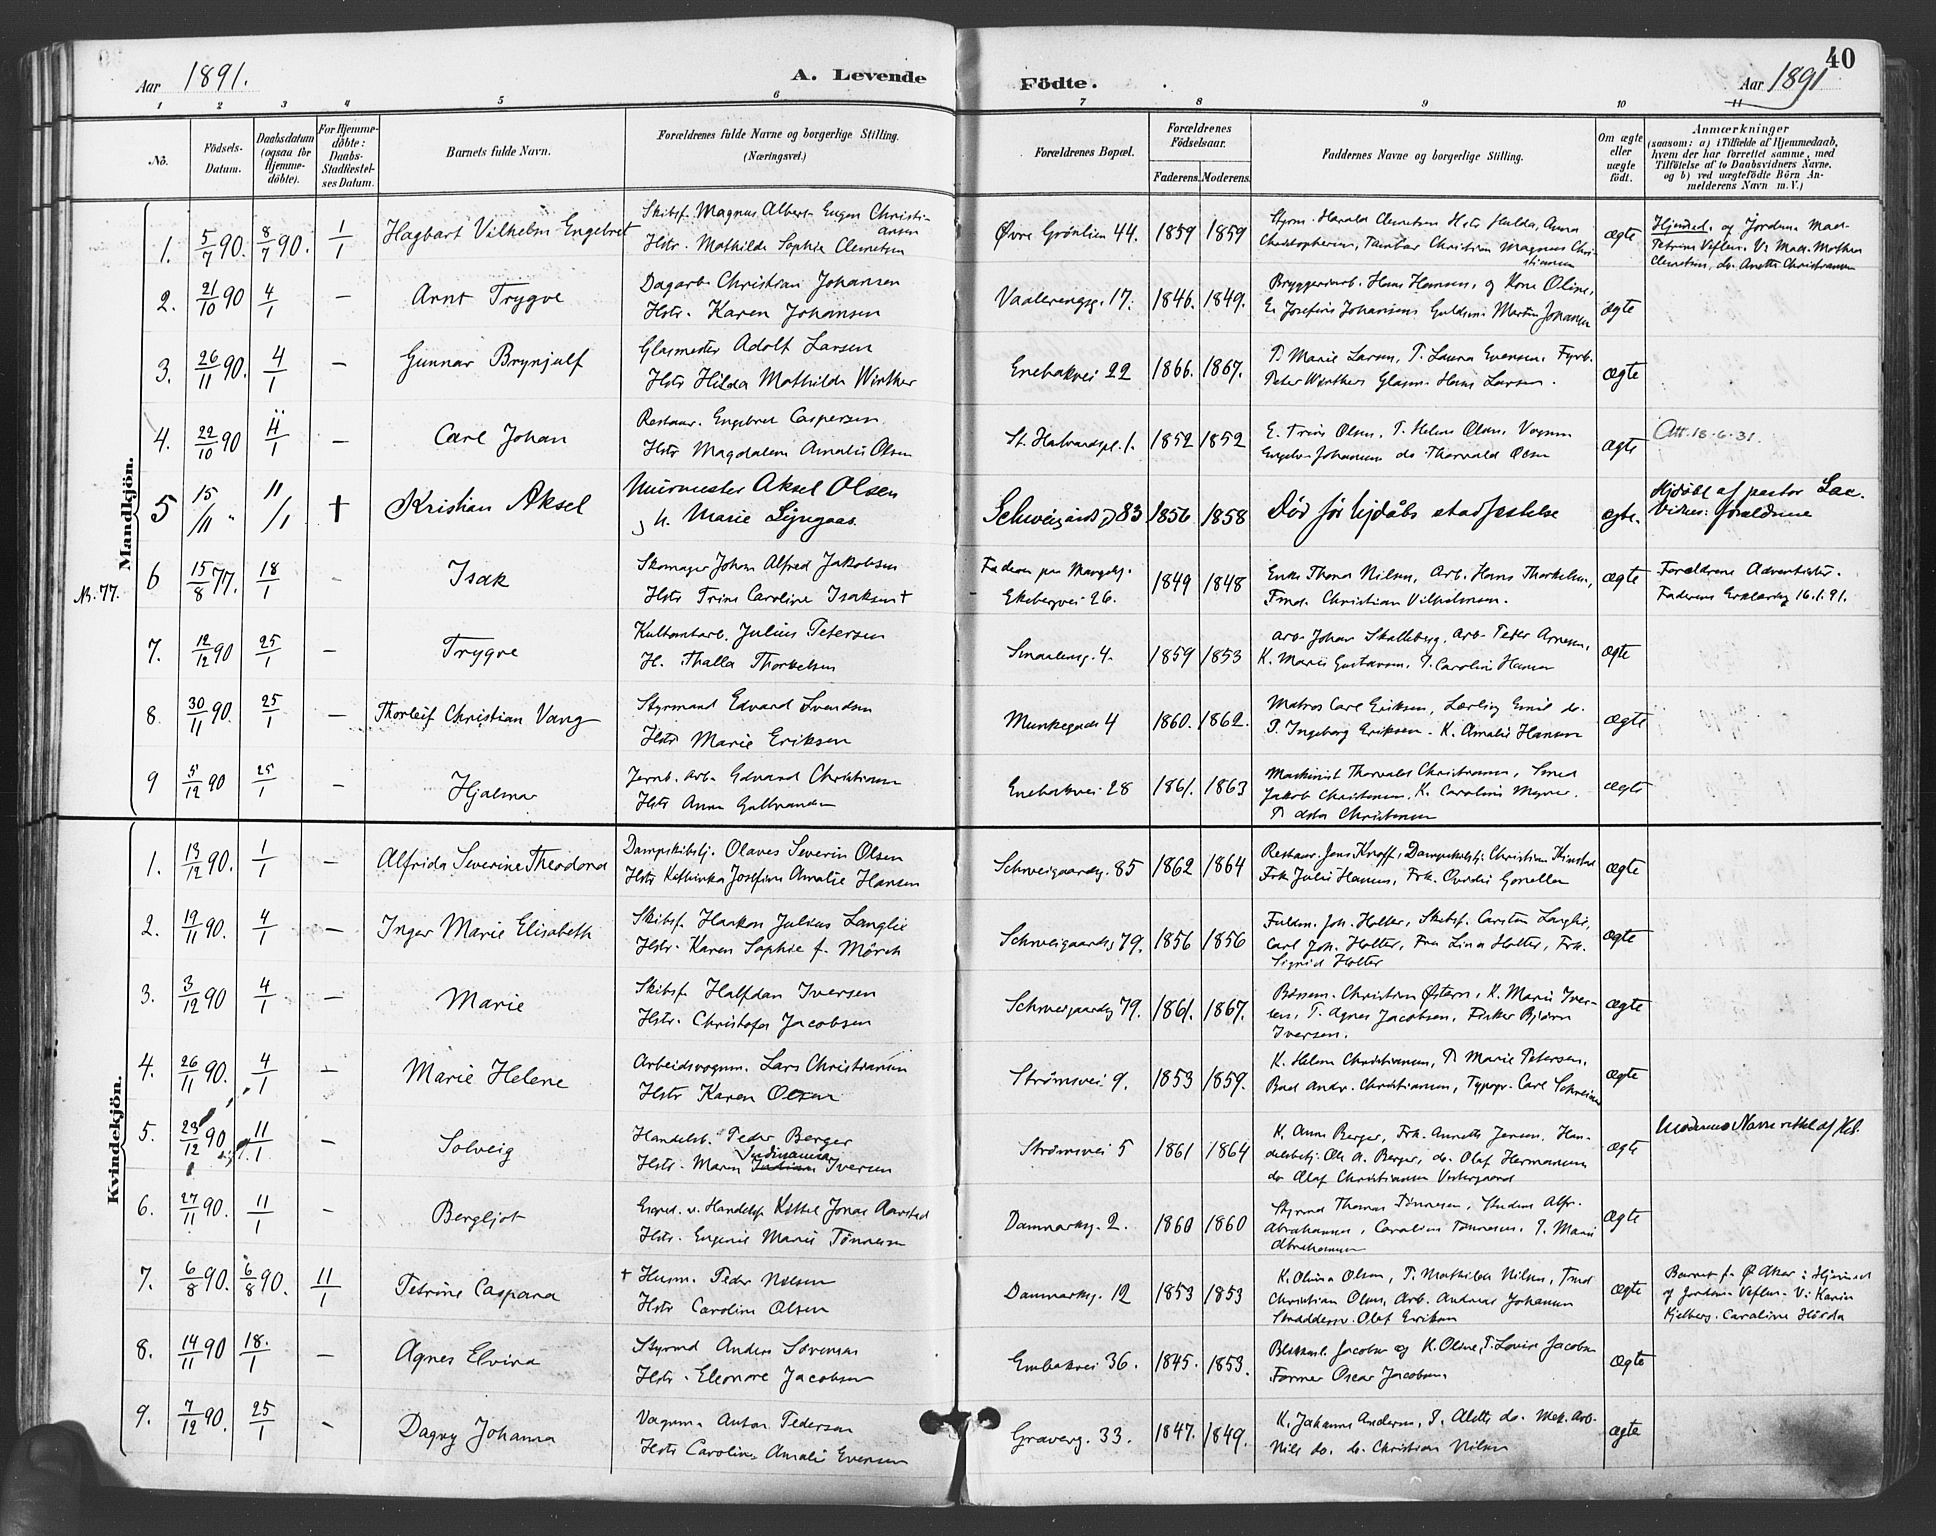 40
Aar 1891.
A. Levende Födte.
Aar 1891
1 2 3 4 5 6 7 8 9 10 11
No.
Födsels-Datum.
Daabsdatum (ogsaa for Hjemme-döbte).
For Hjemme-döbte: Daabs-Stadfæstel-ses Datum.
Barnets fulde Navn.
Forældrenes fulde Navne og borgerlige Stilling. (Næringsvei.)
Forældrenes Bopæl.
Forældrenes Födselsaar.
Faderens. Moderens.
Faddernes Navne og borgerlige Stilling.
Om ægte eller uægte födt.
Anmærkninger
(saasom: a) i Tilfælde af Hjemmedaab, hvem der har forrettet samme, med Tilföielse af to Daabsvidners Navne, og b) ved uægtefödte Börn An-melderens Navn m. V.)
Mandkjön.
1. 5/7 90. 8/7 90. 1/1 Hagbart Vilhelm Engebret
Skibsf. Magnus Albert Eugen Christi-ansen
Hstr. Mathilde Sophie Clemetsen
Øvre Grönlien 44. 1859 1859
ægte
2. 21/10 90 4/1 — Arnt Trygve
Dagarb. Christian Johansen
Hstr. Karen Johansen
Vaalerengg. 17. 1846. 1849.
Bryggeriarb. Hans Hansen, og Kone Oline,
ægte
3. 26/11 90. 4/1 — Gunnar Brynjulf
Glasmester Adolf Larsen
Hstr Hilda Mathilde Winther
Enebakvei 22 1866. 1867.
P. Marie Larsen, P. Laura Evensen, Fyrb.
Peter Winther, Glasm. Hans Larsen.
ægte
4. 22/10 90 11/1 — Carl Johan
Restaur. Engebret Caspersen
Hstr Magdalene Amalie Olsen
St. Halvardspl. 1. 1852 1852
E. Trine Olsen, P. Helene Olsen, Vognm
Engebr. Johansen do Thorvald Olsen
ægte
Att. 18.6.31.
5 15/11 " 11/1 † Kristian Aksel
Murmester Aksel Olsen
o h. Marie Lyngaas.
Schweigårds g 83 1856 1858
Död för hjdåbs stadfæstelse
ægte.
Hjdöbt af pastor
Vidner: forældrene
Nr. 77.
6 15/8 77. 18/1 — Isak
Skomager Johan Alfred Jakobsen
Hstr Trine Caroline Isaksen †
Ekebergvei 26. 1849 1848
Enke Thona Nilsen, Arb. Hans Thorkelsen,
Tmd. Christian Vilhelmsen.
ægte
Forældrene Adventister.
Faderens Erklæring 16.1.91.
7. 12/12 90 25/1 — Trygve
Kulkontarb. Julius Petersen
H. Thalla Thorkelsen
Smaalensg. 4. 1859 1853
Arb. Johan Skalleberg, Arb. Peter Arnesen,
K. Marie Gustavsen, P. Caroline Hansen
ægte
8. 30/11 90. 25/1 — Thorleif Christian Vang
Styrmand Edvard Svendsen
Hstr Marie Eriksen
Munkegade 4 1860. 1862.
Matros Carl Eriksen, Lærling Emil do.
P. Ingeborg Eriksen. K. Amalie Hansen
ægte
9 5/12 90 25/1 — Hjalmar
Jernb. arb. Edvard Christiansen
Hstr Anna Gulbrandsen
Enebakvei 28 1861. 1863
Maskinist Thorvald Christiansen, Smed
Jakob Christensen, K. Caroline Meyer.
ægte
Kvindekjön.
1. 13/12 90. 1/1 — Alfrida Severine Theodora
Dampskibstj. Olaves Severin Olsen
Hstr Kathinka Josefine Amalie Hansen
Schweigaardsg. 85 1862 1864
Restaur. Jens Knoff, Dampskibstj. Christian
Frk Julie Hansen, Frk.
ægte
2. 19/11 90. 4/1 — Inger Marie Elisabeth
Skibsf. Haakon Julius Langlie
Hstr. Karen Sophie f. Mörch
Schweigaardsg 79. 1856 1856
Fuldm. Joh. Holter, Skibsf. Carsten Langlie,
Carl Joh. Holter, Fru Lina Holter, Frk.
Sigrid Holter
ægte
3. 3/12 90 4/1 — Marie
Skibsf. Halfdan Iversen
Hstr. Christofa Jacobsen
Schweigaardsg 79. 1861. 1867.
Bössem. Christian Østern, K. Marie Iver-
sen, P. Agnes Jacobsen, Fisker Bjørn
Iversen.
ægte
4. 26/11 90. 4/1 — Marie Helene
Arbeidsvognm. Lars Christiansen
Hstr Karen Olsen
Strømsvei 9. 1853 1859.
K. Helene Christiansen, P. Marie Petersen,
Bud Andr. Christiansen, Typogr. Carl
ægte
5. 23/12 90 11/1 — Solveig
Handelsb. Peder Berger
Ferdinanda
Hstr. Maren Iversen
Strømsvei 5 1861 1864
K. Anna Berger, Frk. Annette Jensen, Han-
delsbetj. Ole A. Berger, do. Olaf Hermansen
do Olaf Christiansen Vestergaard
ægte
Moderens Navn rettet af
6. 27/11 90. 11/1 — Bergljot
Hstr. Eugenie Marie Tönnesen
Danmarksg. 2. 1860 1860
Styrmd Thomas Tönnesen, Student Alfr.
Abrahamsen, Caroline Tönnesen, P. Marie
Abrahamsen
ægte
7. 6/8 90. 6/8 90. 11/1 Petrine Caspara
† Husm. Peder Nilsen
Hstr Caroline Olsen
Danmarksg. 12 1853 1853
K. Olina Olsen, P. Mathilde Nilsen, Tmd
Christian Olsen, Arb. Andreas Johansen
Skræddersv. Olaf Eriksen
ægte
Barnet f. Ø. Aker: Hjemmed
8. 14/11 90 18./1 — Agnes Elvira
Styrmd Anders Sørensen
Hstr. Eleonore Jacobsen
Enebakvei 36. 1845. 1853.
Jacobsen og K. Oline, P. Lovise Jacobsen
Former Oscar Jacobsen
ægte
9. 7/12 90. 25/1 — Dagny Johanna
Vognm. Anton Pedersen
Hstr Caroline Amalie Evensen
Graverg. 33. 1847. 1849.
K. Johanne Andersen, P. Alette do. Mek. Arb.
Nils do. do. Christian Nilsen
ægte